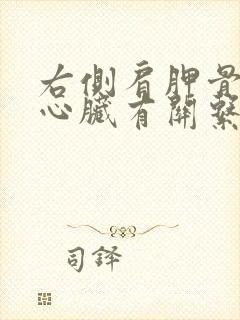 右側肩胛骨
心臟有關繫
司鐸